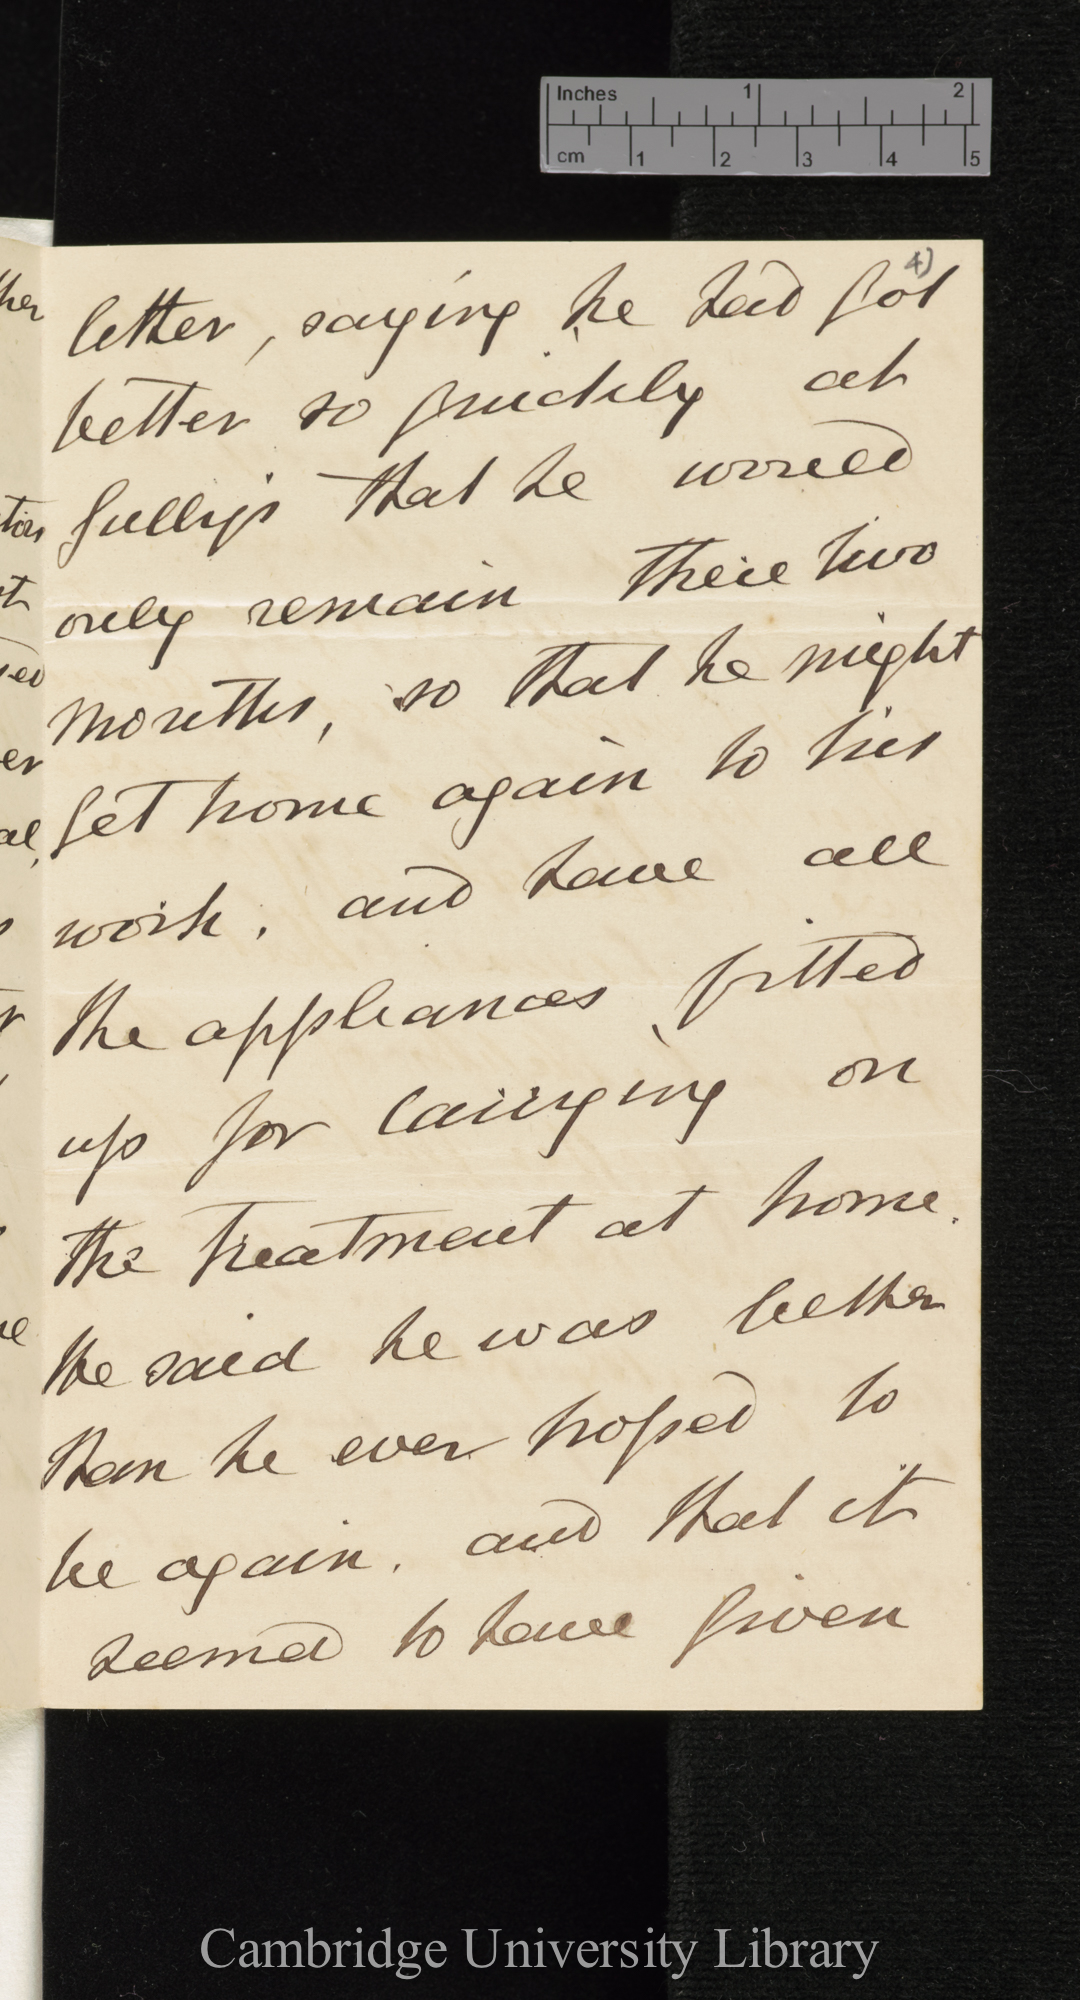 Inches 1 2
cm 1 2 3 4 5
4)
letter, saying he had got
better so quickly at
Gully's that he would
only remain there two
months, so that he might
get home again to his
work, and have all
the appliances fitted
up for carrying on
the treatment at home.
He said he was better
than he ever hoped to
be again, and that it
seemed to have given
Cambridge University Library